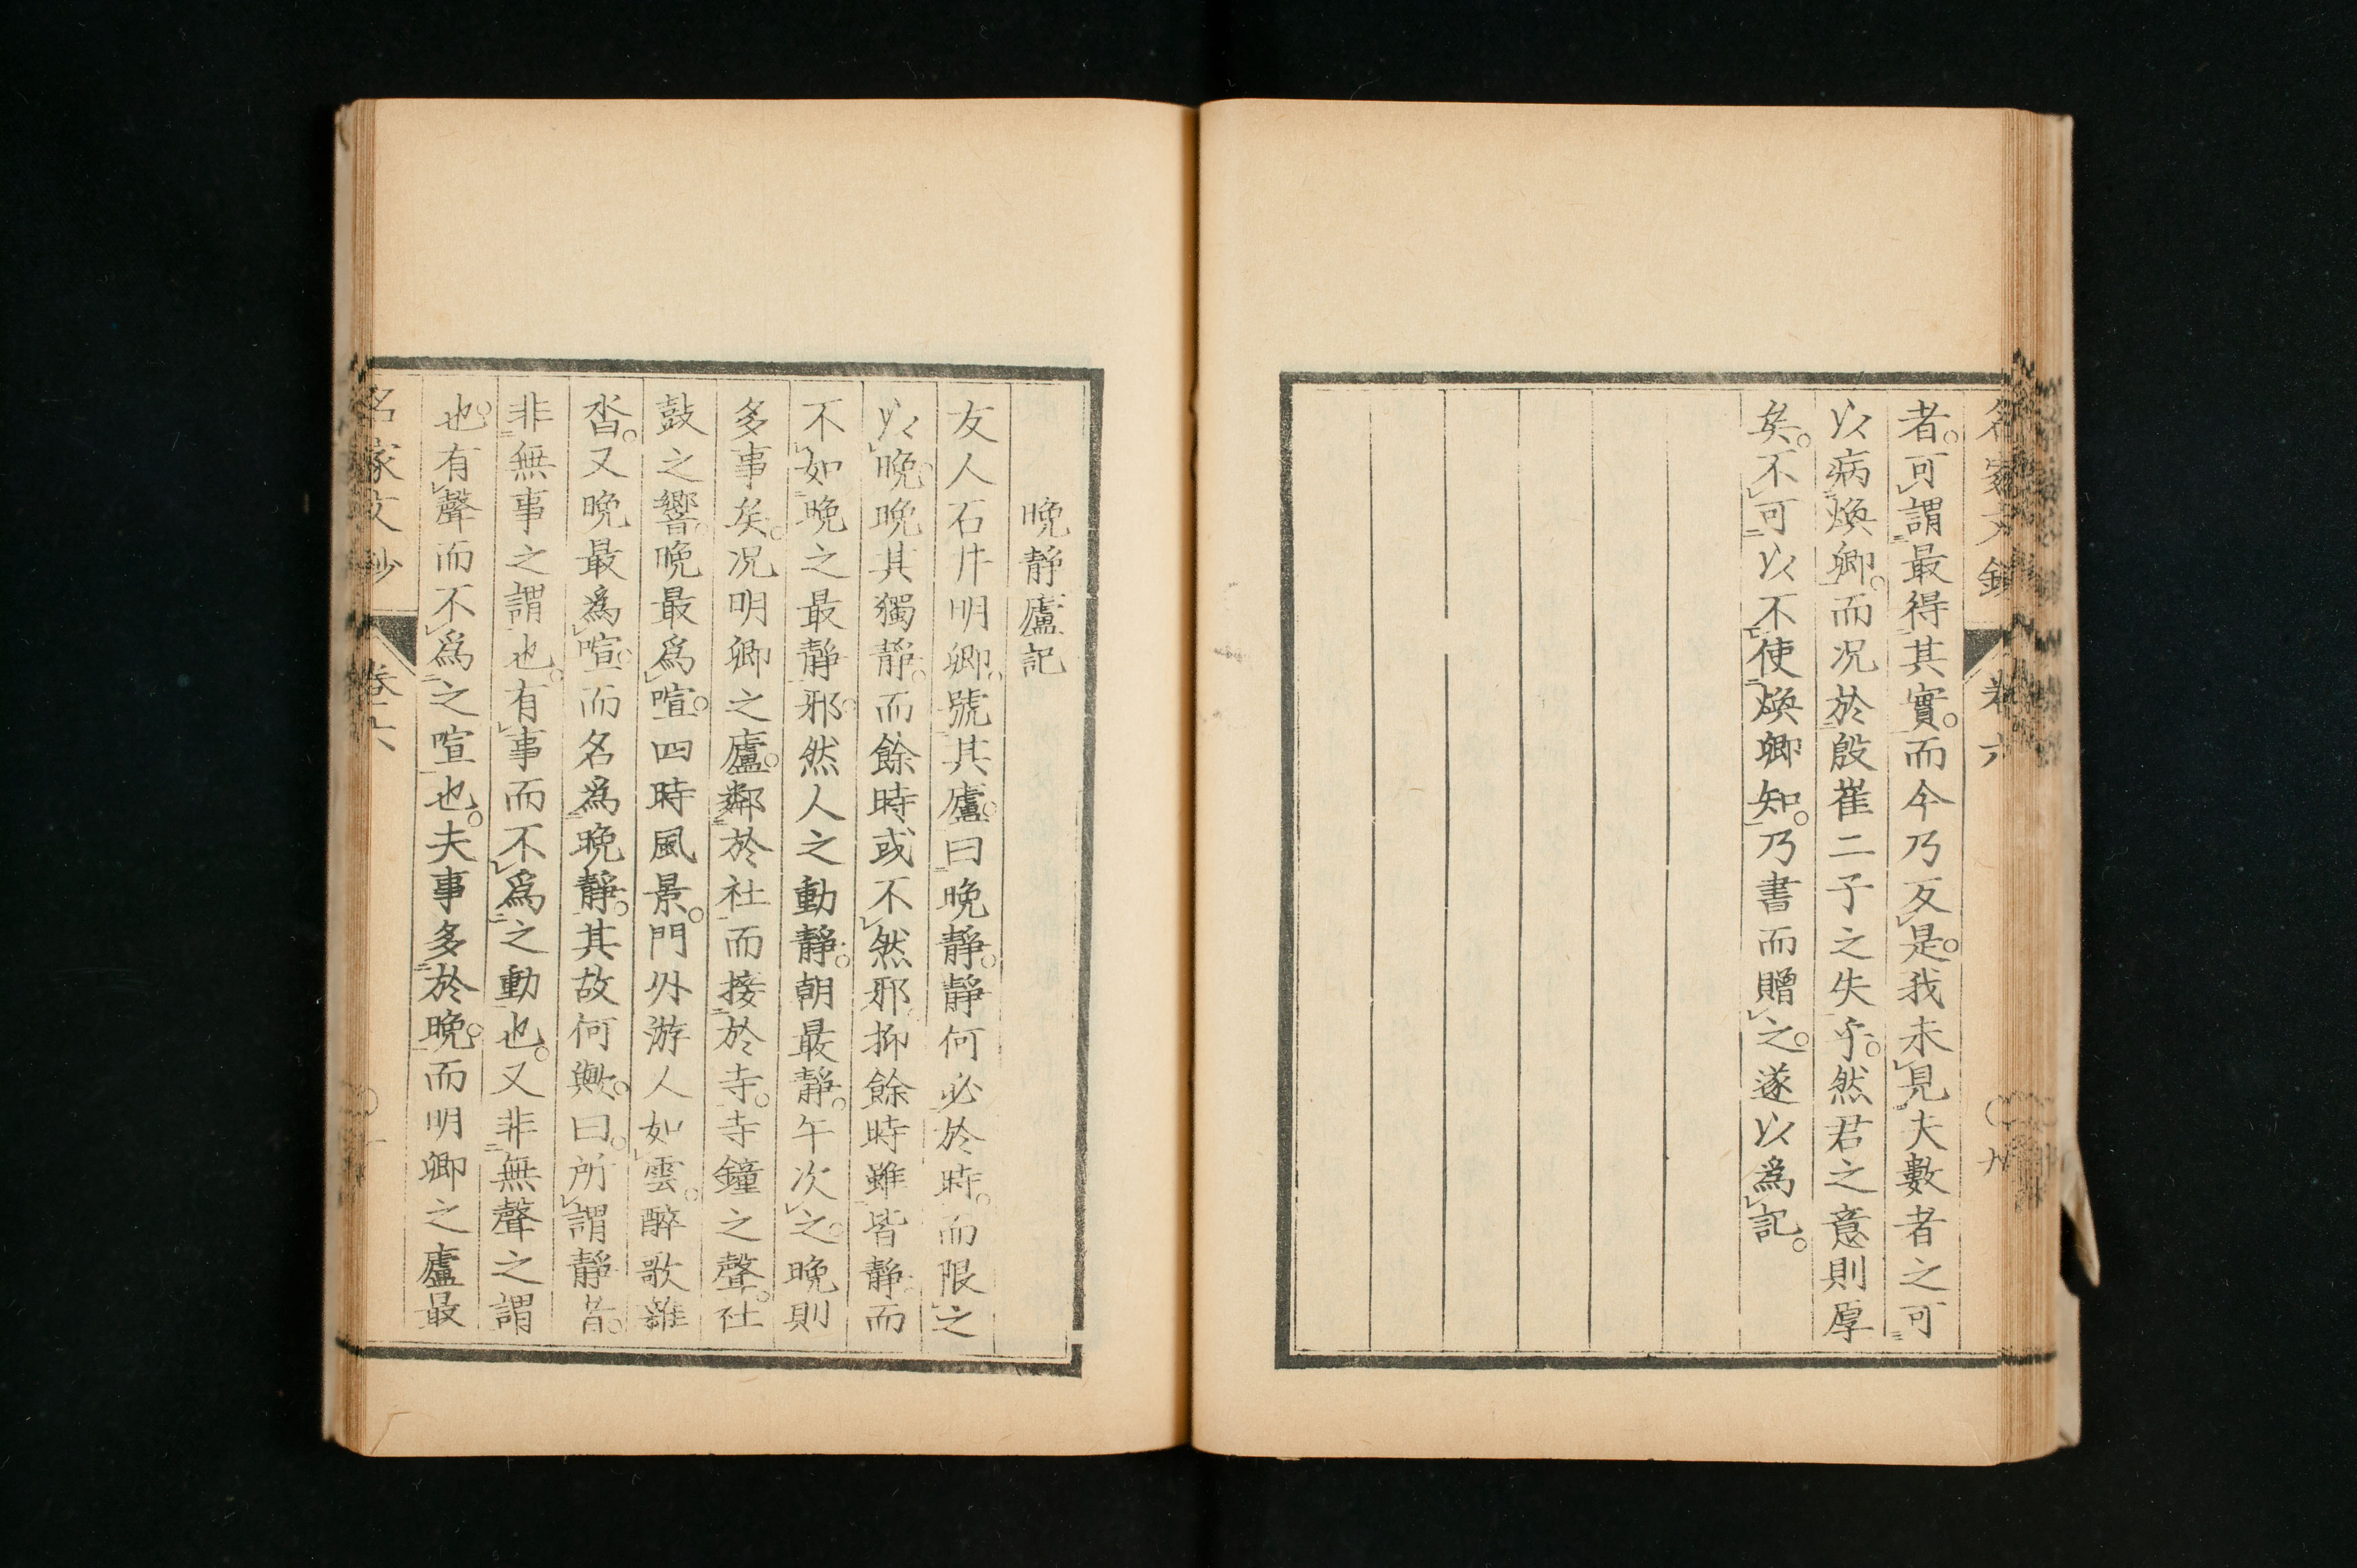 者。可謂最得其實。而今乃反是。我未見夫數者之可
以病煥卿。而況於殷崔二子之失乎。然君之意則厚
矣。不可以不使煥卿知。乃書而贈之。遂以爲記。
卷六
九
晚靜廬記
友人石井明卿。號其廬。曰晚靜。靜何必於時。而限之
以晚。晚其獨靜。而餘時或不然邪。抑餘時雖皆靜。而
不如晚之最靜邪。然人之動靜。朝最靜。午次之。晚則
多事矣。況明卿之廬。鄰於社而接於寺。寺鐘之聲。社
鼓之響。晚最爲喧。四時風景。門外游人如雲。醉歌雜
沓。又晚最爲喧。而名爲晚靜。其故何歟。曰。所謂靜者。
非無事之謂也。有事而不爲之動也。又非無聲之謂
也。有聲而不爲之喧也。夫事多於晚。而明卿之廬最
名家文鈔
卷六